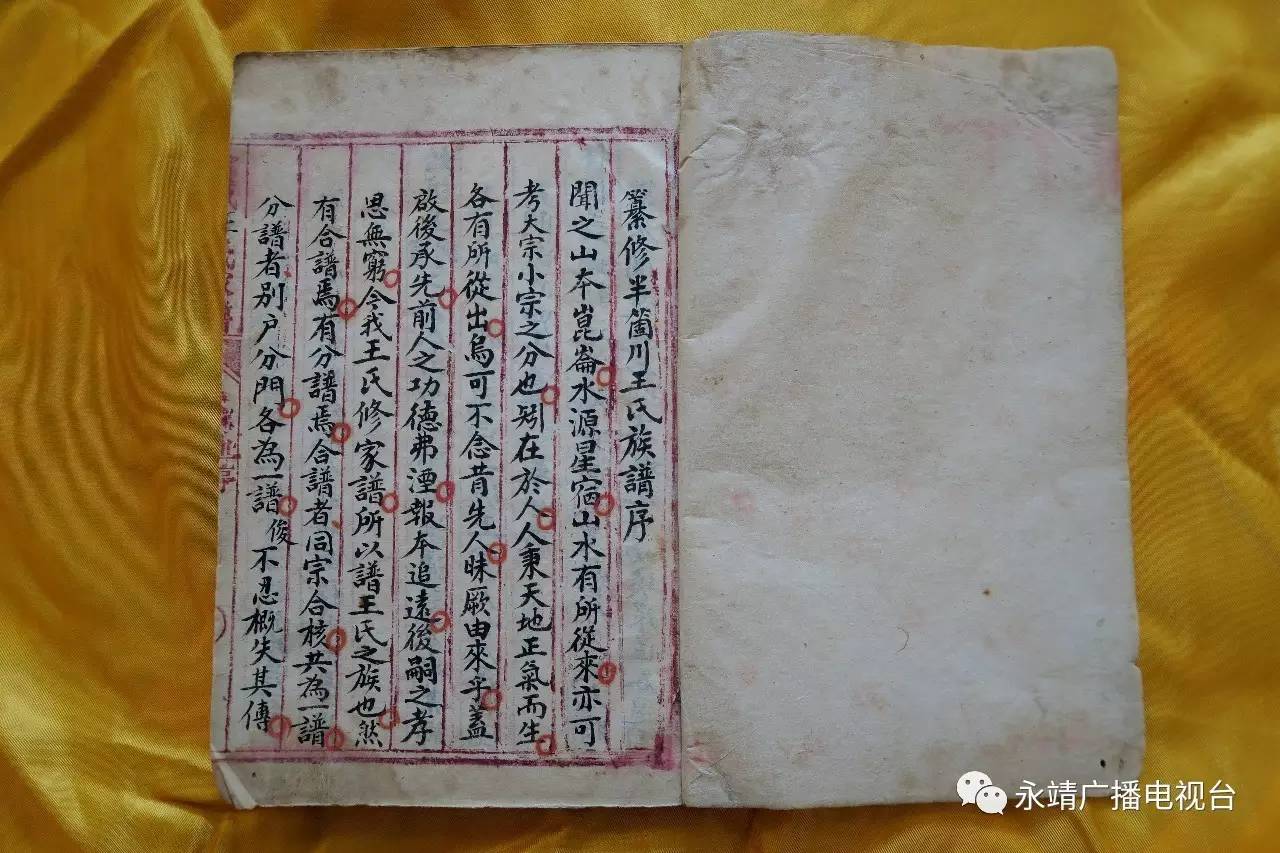 纂修半箇川王氏族譜序
聞之山本崑崙水源星宿山水有所從來亦可
考大宗小宗之分也矧在於人人秉天地正氣而生
各有所從出烏可不念昔先人昧厥由來乎蓋
啟後承先前人之功德弗湮報本追遠後嗣之孝
思無窮今我王氏修家譜所以譜王氏之族也然
有合譜焉有分譜焉合譜者同宗合核共為一譜
分譜者別户分門各為一譜後不忍概失其傳
王氏家譜
序
永靖广播电视台